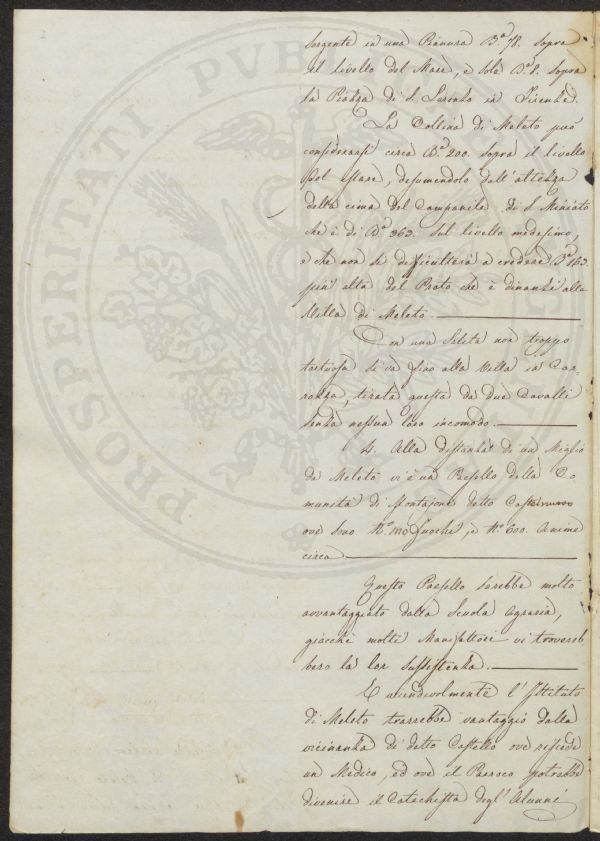 sorgente in una Pianura B.ª 78. sopra
il livello del Mare, e sole B.ª 8. sopra
la Piazza di S. Lorenzo in Firenze.
La Collina di Meleto può
considerarsi circa B.ª 200. sopra il livello
del Mare, desumendolo dall'altezza
della cima del Campanile di S. Miniato
che è di B.ª 363. sul livello medesimo,
e che non si difficulterà a credere B.ª 163
più alta del Prato che è dinanzi alla
Villa di Meleto.
Con una Salita non troppo
tortuosa si và fino alla Villa in Car
rozza, tirata questa da due Cavalli
senza nessun loro incomodo.
4. Alla distanza di un Miglio
da Meleto vi è un Paesello della Co
munità di Montajone detto
ove sono N.º 100 fuochi, e N.º 600. Anime
circa.
Questo Paesello sarebbe molto
avvantaggiato dalla Scuola Agraria,
giacchè molti Manifattori vi trovereb
bero la lor sussistenza.
E vicendevolmente l'Istituto
di Meleto trarrebbe vantaggio dalla
vicinanza di detto Castello ove risiede
un Medico, ed ove il Parroco potrebbe
divenire il Catechista degl'Alunni
PROSPERITATI PVB